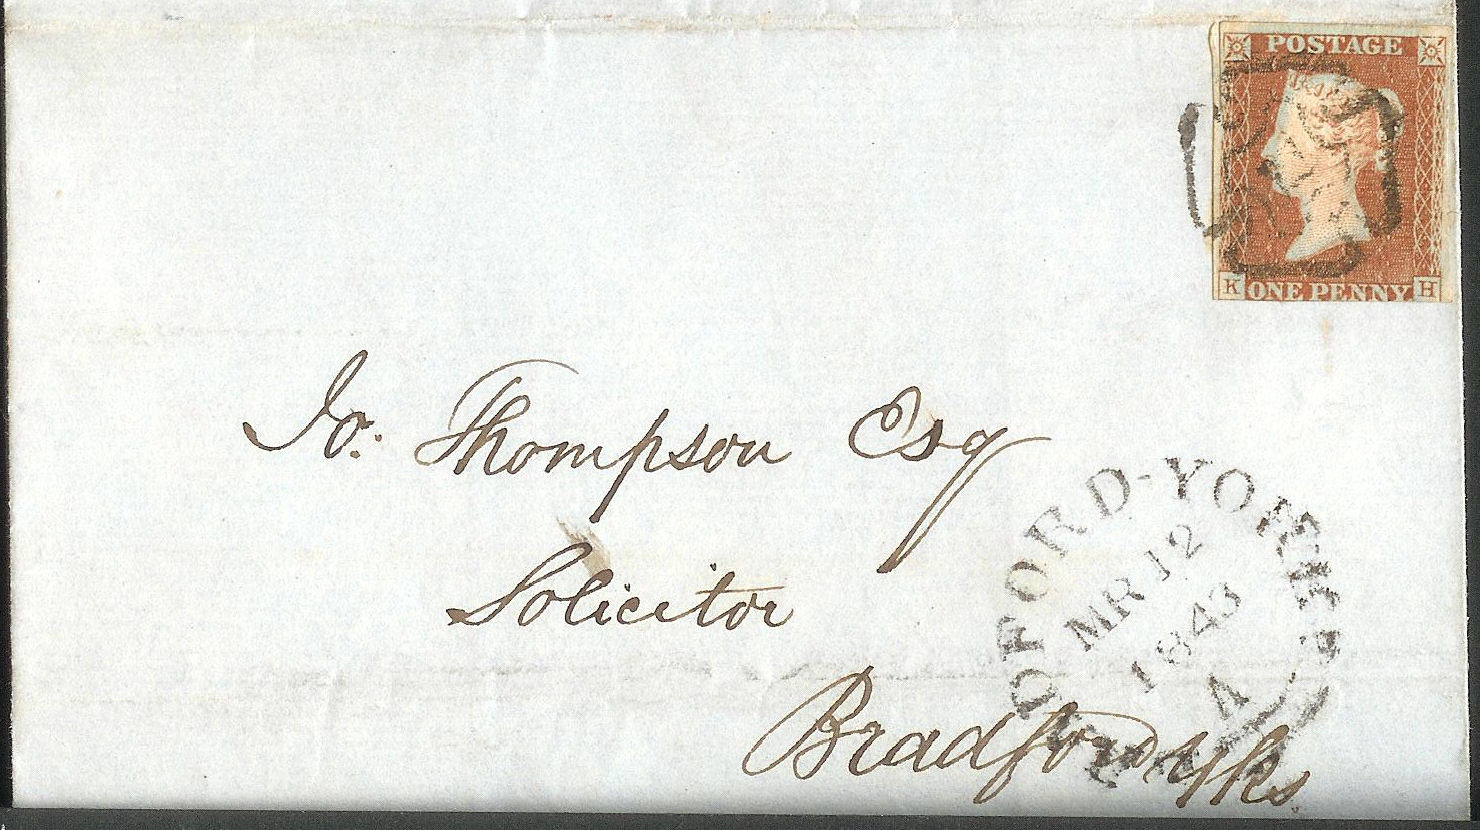 POSTAGE
K ONE PENNY H
Jo. Thompson Esq
Solicitor
Bradford Yks
DFORD-YORKS
MR 12
1843
A